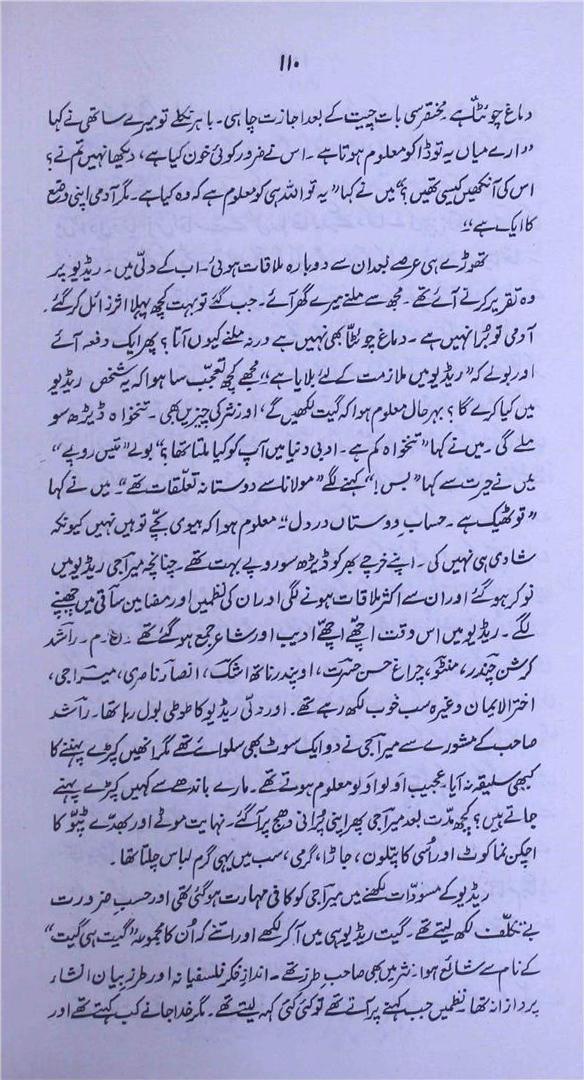 ۱۱۰
دماغ چوٹٹا ہے مختصر سی بات چیت کے بعد اجازت چاہی۔ باہر نکلے تو میرے ساتھی نے کہا
"ارے میاں یہ تو ڈاکو معلوم ہوتا ہے۔ اس نے ضرور کوئی خون کیا ہے، دیکھا نہیں تم نے؟
اس کی آنکھیں کیسی تھیں؟" میں نے کہا "یہ تو اللہ ہی کو معلوم ہے کہ وہ کیا ہے۔ مگر آدمی اپنی وضع
کا ایک ہے"۔
تھوڑے ہی عرصے بعد ان سے دوبارہ ملاقات ہوئی۔ اب کے دلّی میں۔ ریڈیو پر
وہ تقریر کرنے آئے تھے۔ مجھ سے ملنے میرے گھر آئے۔ جب گئے تو بہت کچھ پہلا اثر زائل کر گئے۔
آدمی تو بُرا نہیں ہے۔ دماغ چوٹٹا بھی نہیں ہے ورنہ ملنے کیوں آتا؟ پھر ایک دفعہ آئے
اور بولے کہ "ریڈیو میں ملازمت کے لئے بلایا ہے"۔ مجھے کچھ تعجب سا ہوا کہ یہ شخص ریڈیو
میں کیا کرے گا؟ بہر حال معلوم ہوا کہ گیت لکھیں گے، اور نثر کی چیزیں بھی۔ تنخواہ ڈیڑھ سو
ملے گی۔ میں نے کہا "تنخواہ کم ہے۔ ادبی دنیا میں آپ کو کیا ملتا تھا؟" بولے "تیس روپے"۔
میں نے حیرت سے کہا "بس!" کہنے لگے "مولانا سے دوستانہ تعلّقات تھے"۔ میں نے کہا
"تو ٹھیک ہے۔ حساب دوستاں در دل"۔ معلوم ہوا کہ بیوی بچّے تو ہیں نہیں کیونکہ
شادی ہی نہیں کی۔ اپنے خرچے بھر کو ڈیڑھ سو روپے بہت تھے۔ چنانچہ میراجی ریڈیو میں
نوکر ہو گئے اور ان سے اکثر ملاقات ہونے لگی اور ان کی نظمیں اور مضامین ساقی میں چھپنے
لگے۔ ریڈیو میں اس وقت اچھّے اچھّے ادیب اور شاعر جمع ہو گئے تھے۔ ن۔ م۔ راشد
کرشن چندر، منٹو، چراغ حسن حسرت، اوپندر ناتھ اشک، انصار ناصری، میراجی،
اختر الایمان وغیرہ سب خوب لکھ رہے تھے۔ اور دلّی ریڈیو کا طوطی بول رہا تھا۔ راشد
صاحب کے مشورے سے میراجی نے دو ایک سوٹ بھی سلوائے تھے مگر انھیں کپڑے پہننے کا
کبھی سلیقہ نہ آیا۔ عجیب اَولو اَولو معلوم ہوتے تھے۔ مارے باندھے سے کہیں کپڑے پہنے
جاتے ہیں؟ کچھ مدّت بعد میراجی پھر اپنی پُرانی دھج پر آگئے۔ نہایت موٹے اور بھدّے پٹّو کا
اچکن نما کوٹ اور اُسی کا پتلون، جاڑا، گرمی، سب میں یہی گرم لباس چلتا تھا۔
ریڈیو کے مسودّات لکھنے میں میراجی کو کافی مہارت ہو گئی تھی اور حسب ضرورت
بے تکلّف لکھ لیتے تھے۔ گیت ریڈیو ہی میں آکر لکھے اور اتنے کہ اُن کا مجموعہ "گیت ہی گیت"
کے نام سے شائع ہوا۔ نثر میں بھی صاحبِ طرز تھے۔ اندازِ فکر فلسفیانہ اور طرزِ بیان انشاء
پردازانہ تھا۔ نظمیں جب کہنے پر آتے تھے تو کئی کئی کہہ لیتے تھے۔ مگر خدا جانے کب کہتے تھے اور